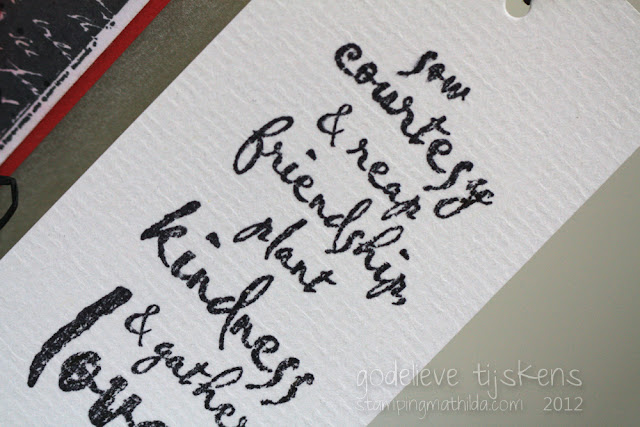 sow
courtesy
& reap
friendship,
plant
kindness
& gather
love
godelieve tijskens
stampingmathilda.com 2012